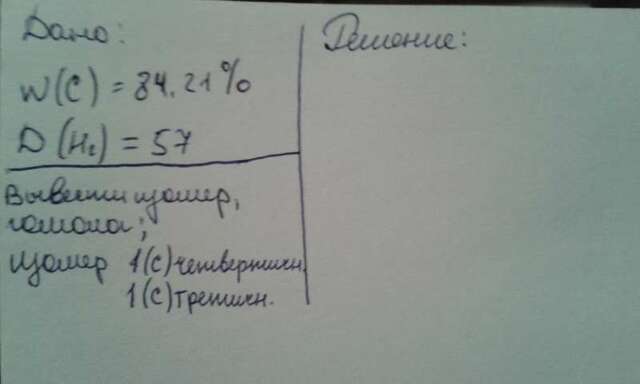 Дано:
W(C) = 84.21%
D(H₂) = 57
Вывести изомер,
гомолог;
изомер 1(C) четвертичн.
1(C) третичн.
Решение: